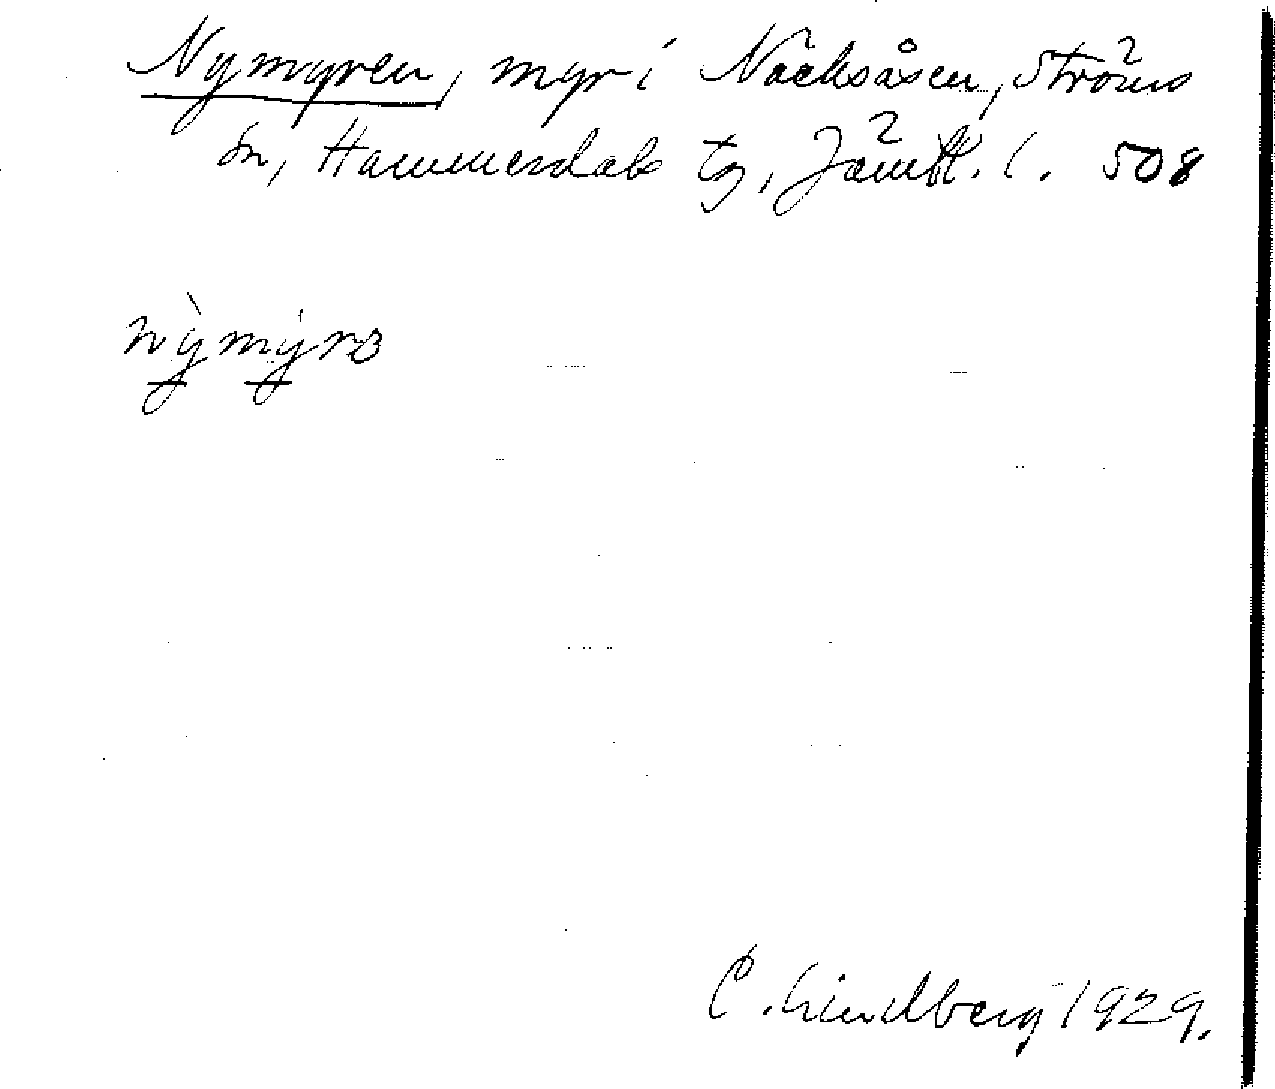 Nymyren, myr i Näcksåsen, Ströms
sn, Hammerdals tg, Jämtl. l. 508
nỳmy̍rɜ
C. Lindberg 1929.